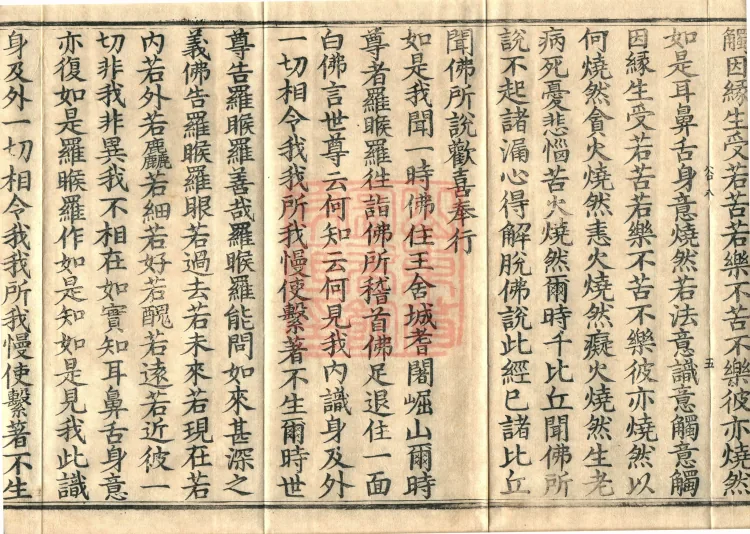 觸因緣生受若苦若樂不苦不樂彼亦燒然
如是耳鼻舌身意燒然若法意識意觸意觸
因緣生受若苦若樂不苦不樂彼亦燒然以
何燒然貪火燒然恚火燒然癡火燒然生老
病死憂悲惱苦火燒然爾時千比丘聞佛所
說不起諸漏心得解脫佛說此經已諸比丘
聞佛所說歡喜奉行
如是我聞一時佛住王舍城耆闍崛山爾時
尊者羅睺羅往詣佛所稽首佛足退住一面
白佛言世尊云何知云何見我內識身及外
一切相令我我所我慢使繫著不生爾時世
尊告羅睺羅善哉羅睺羅能問如來甚深之
義佛告羅睺羅眼若過去若未來若現在若
內若外若麤若細若好若醜若遠若近彼一
切非我非異我不相在如實知耳鼻舌身意
亦復如是羅睺羅作如是知如是見我此識
身及外一切相令我我所我慢使繫著不生
五